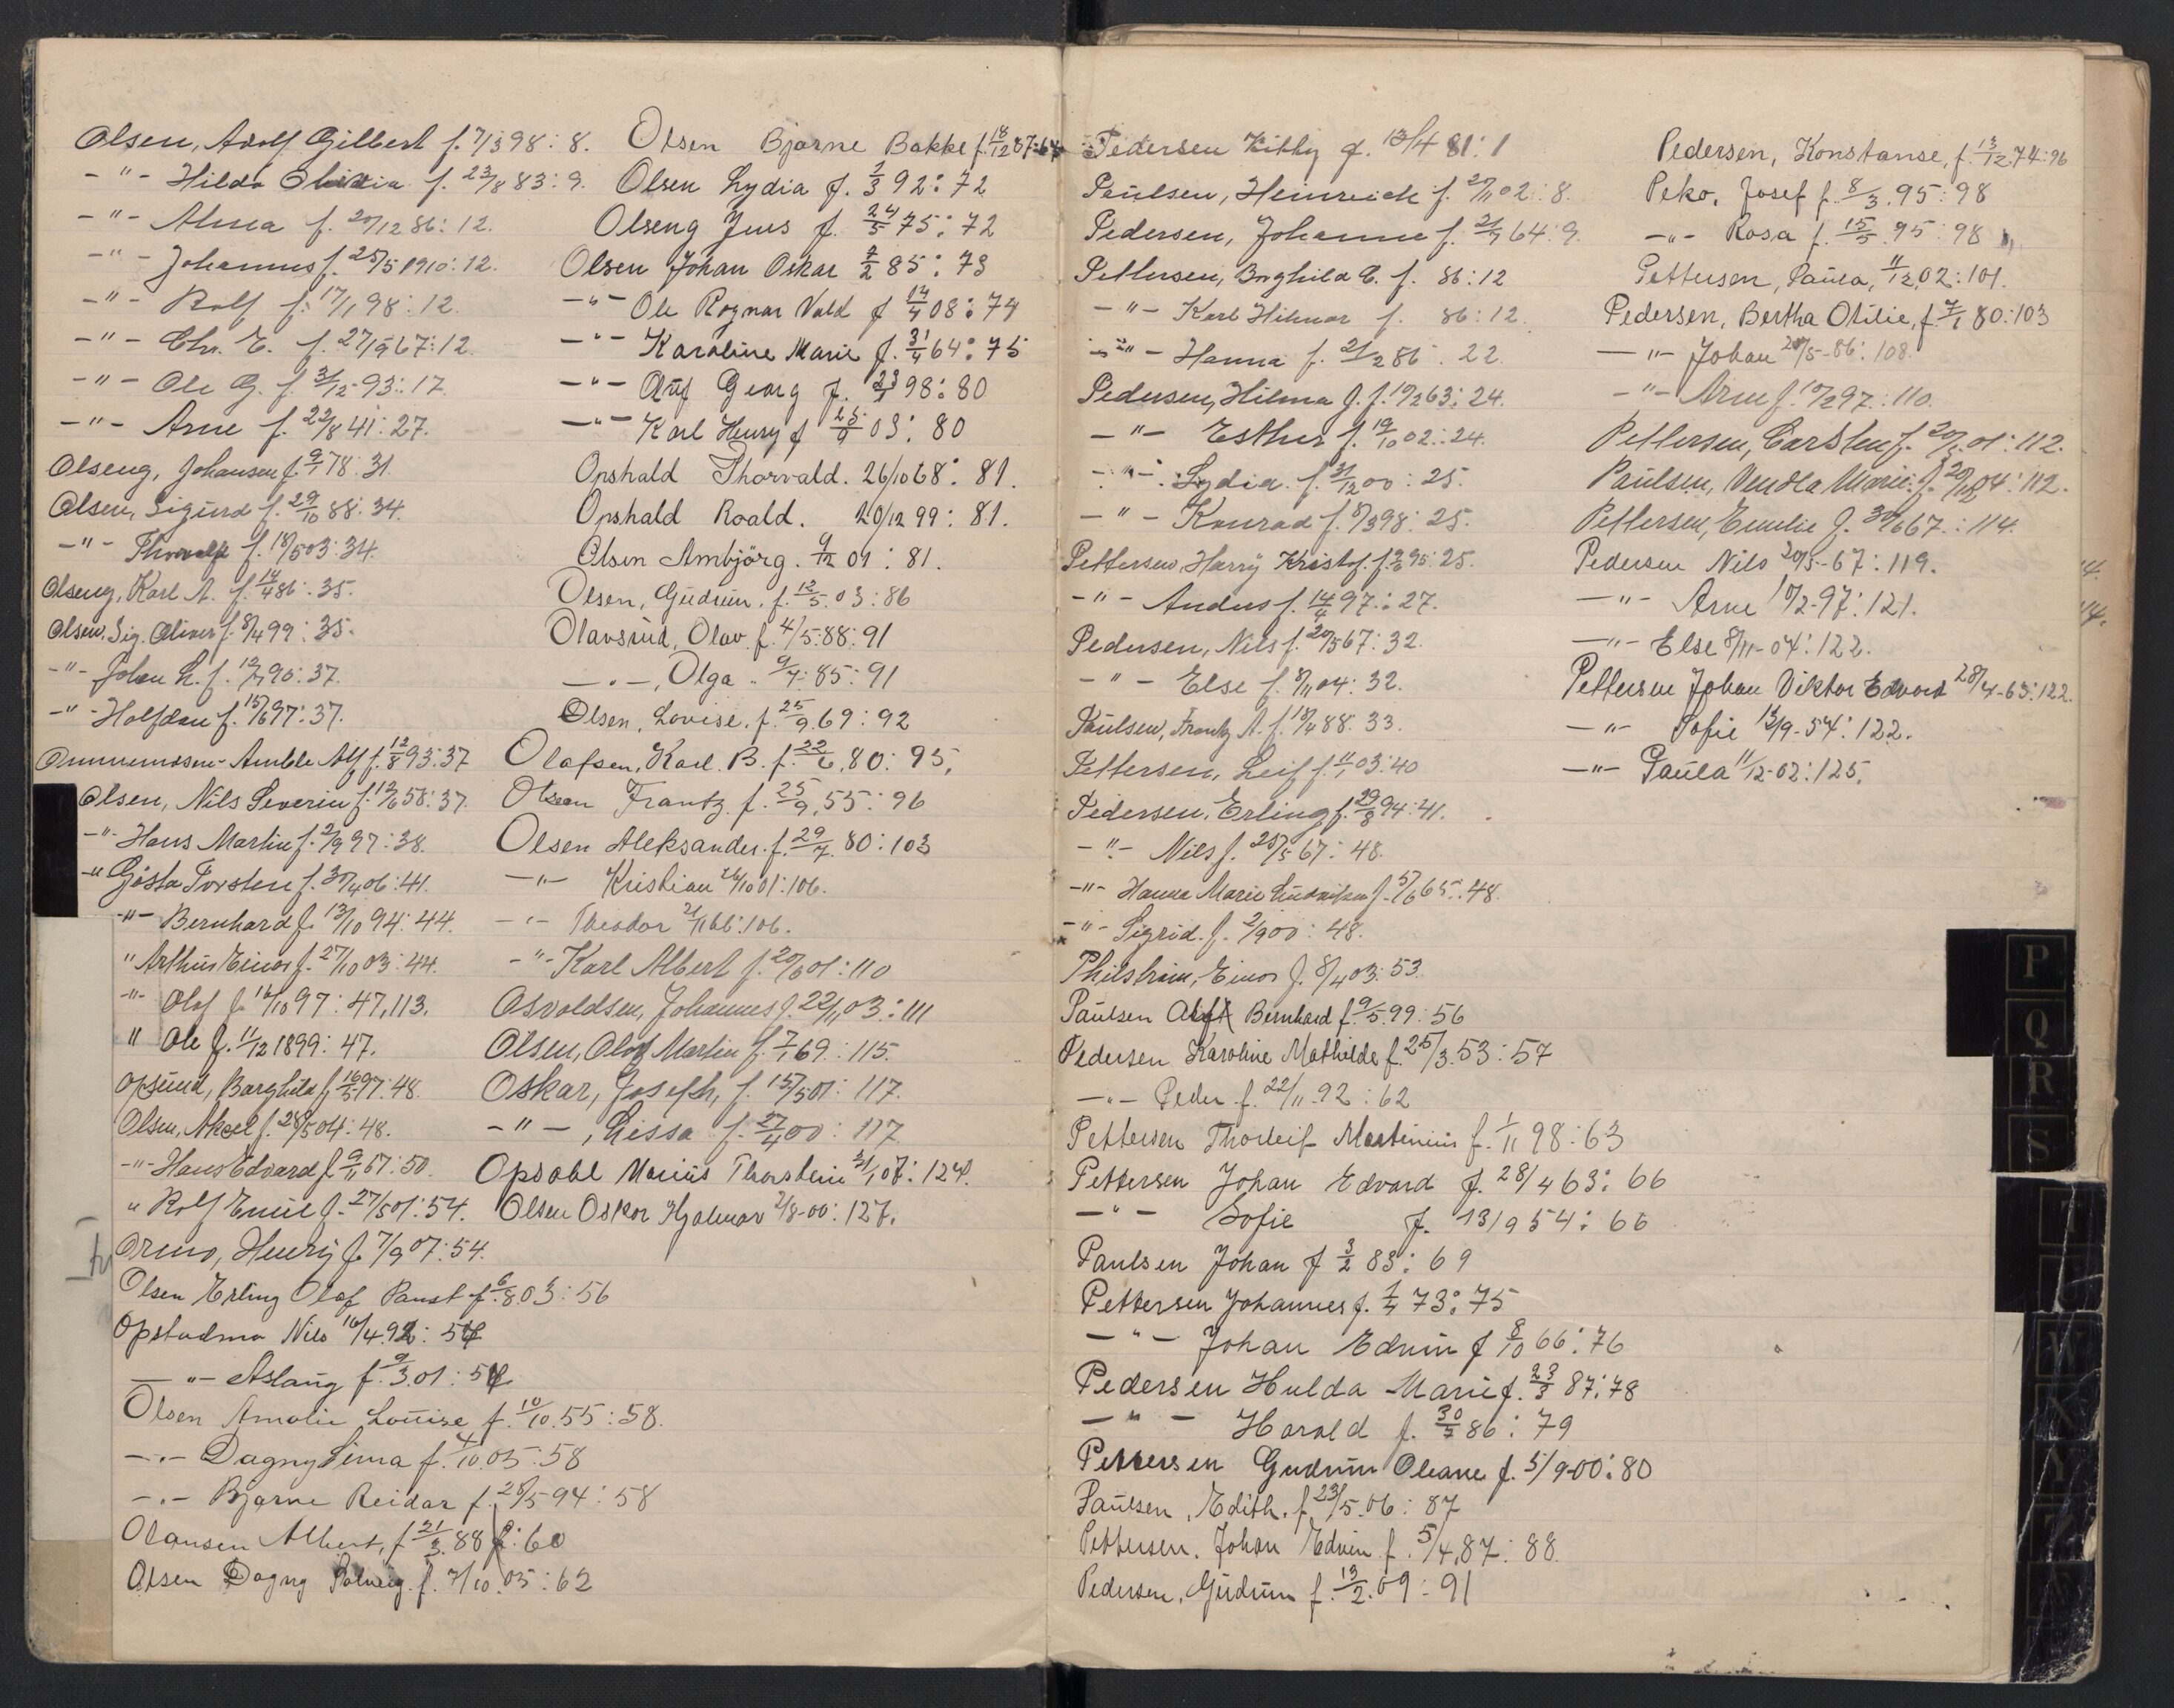 Olsen, Adolf Gilbert f. 7/3 98: 8.
-"- Hilda f. 23/8 83: 9.
-"- Alma f. 20/12 86: 12.
-"- Johannes f. 25/5 1910: 12.
-"- Rolf f. 17/1 98: 12.
-"- Chr. E. f. 27/9 67: 12.
-"- Ole G. f. 31/12-93: 17.
-"- Arne f. 22/8 41: 27.
Olseng, Johansen f. 9/1 78: 31.
Olsen, Sigurd f. 29/10 88: 34.
-"- f. 18/5 03: 34.
Olseng, Karl A. f. 14/4 86: 35.
Olsen, Sig. Oliver f. 8/4 99: 35.
-"- Johan L. f. 12/7 90: 37.
-"- Halfdan f. 15/6 97: 37.
Amble Alf f. 12/8 93: 37
Olsen, Nils Severin f. 12/6 58: 37.
-"- Hans Martin f. 2/9 97: 38.
-"- Gösta Torsten f. 30/4 06: 41.
-"- Bernhard f. 13/10 94: 44.
" Arthur Einar f. 27/10 03: 44.
-"- Olaf f. 16/10 97: 47, 113.
" Ole f. 11/12 1899: 47.
Opsund, Borghild f. 16/5 97: 48.
Olsen, Aksel f. 28/5 04: 48.
-"- Hans Edvard f. 9/11 67: 50.
" Rolf Emil f. 27/5 01: 54.
Ormo, Henry f. 7/9 07: 54.
Olsen Erling Olaf f. 6/8 03: 56
Nils 16/4 92: 54
-"- Aslaug f. 9/3.01: 54
Olsen Amalie Louise f. 10/10.55: 58.
-"- Dagny f. 4/10.05: 58
-"- Bjarne Reidar f. 28/5 94: 58
Olausen Albert, f. 21/3.88: 60
Olsen Dagny Solveig. f. 7/10.05: 62
Olsen Bjarne Bakke f. 18/12 07: 64
Olsen Lydia f. 2/3 92: 72
Olseng Jens f. 24/5 75: 72
Olsen Johan Oskar 7/2 85: 73
-"- Ole Ragnar Vald f. 14/4 08: 74
-"- Karoline Marie f. 31/4 64: 75
-"- Georg f. 23/1 98: 80
-"- Karl Henry f. 25/9 03: 80
Opshald Thorvald. 26/10 68: 81.
Opshald Roald. 20/12 99: 81.
Olsen Ambjörg. 9/12 01: 81.
Olsen, Gudrun. f. 12/5.03: 86
Olavsrud, Olav. f. 4/5.88: 91
-"-, Olga " 9/4.85: 91
Olsen, Lovise. f. 25/9.69: 92
Olafsen, Karl. B. f. 22/6.80: 95.
Olsen Frantz. f. 25/9.55: 96
Olsen Aleksander. f. 29/7. 80: 103
-"- Kristian 26/10 01: 106.
-"- Theodor 21/11 66: 106.
-"- Karl Albert f. 20/6 01: 110
Osvoldsen, Johannes f. 22/11 03: 111
Olsen, Olaf Martin f. 7/1 69: 115.
Oskar, Joseph, f. 15/5 01: 117.
-"-, Lissa f. 27/4 00: 117
Opsahl Marius Thorstein 31/1 07: 124.
Olsen Oskar Hjalmar 2/8-00: 127.
Pedersen Kitty f. 13/4 81: 1
Paulsen, Heinrich f. 27/11 02: 8.
Pedersen, Johanne f. 21/7 64: 9.
Pettersen, Borghild E. f. 86: 12
-"- Karl Hilmar f. 86: 12.
-"- Hanna f. 21/2 86: 22.
Pedersen, Hilma J. f. 19/2 63: 24.
-"- Esther f. 19/10 02: 24.
-"- Lydia f. 31/12 00: 25.
-"- Konrad f. 8/3 98: 25.
Pettersen, Harry Kristof. f. 2/6 95: 25.
-"- Anders f. 14/4 97: 27.
Pedersen, Nils f. 20/5 67: 32.
-"- Else f. 8/11 04: 32.
Paulsen, Frantz A. f. 18/4 88: 33.
Pettersen, Leif f. 11/1 03: 40
Pedersen, Erling f. 29/8 94: 41.
-"- Nils f. 20/5 67: 48.
-"- Hanna Marie f. 5/6 65: 48.
-"- Sigrid. f. 2/9 00: 48.
Philstrøm, Einar f. 8/4 03: 53.
Paulsen Bernhard f. 9/5.99: 56
Pedersen Karoline Mathilde f. 25/3.53: 57
-"- Peder f. 22/11.92: 62
Pettersen Thorleif Martinius f. 1/11 98: 63
Pettersen Johan Edvard f. 28/4 63: 66
-"- Sofie f. 13/9 54: 66
Paulsen Johan f. 3/2 83: 69
Pettersen Johannes f. 1/4 73: 75
-"- Johan Edvin f. 8/10 66: 76
Pedersen Hulda Marie f. 23/3 87: 78
-"- Harald f. 30/7 86: 79
Pettersen Gudrun Oleane f. 5/9-00: 80
Paulsen, Edith. f. 23/5.06: 87
Pettersen, Johan Edvin f. 5/4.87: 88
Pedersen, Gudrun f. 13/2.09: 91
Pedersen, Konstanse, f. 13/12.74: 96
Peko, Josef f. 8/3.95: 98
-"- Rosa f. 15/5.95: 98
Pettersen, Paula, 11/12.02: 101.
Pedersen, Bertha Otilie, f. 7/1 80: 103
-"- Johan 20/5-86: 108.
-"- Arne f. 10/2 97: 110.
Pettersen, Carsten f. 20/5.01: 112.
Paulsen, Vendla Marie f. 20/12 04: 112.
Pettersen, Emilie f. 30/6 67: 114.
Pedersen Nils 20/5-67: 119.
-"- Arne 10/2-97: 121.
-"- Else 8/11-04: 122.
Pettersen Johan Viktor Edvard 28/4-63: 122.
-"- Sofie 13/9-54: 122.
-"- Paula 11/12-02: 125.
P
Q
R
S